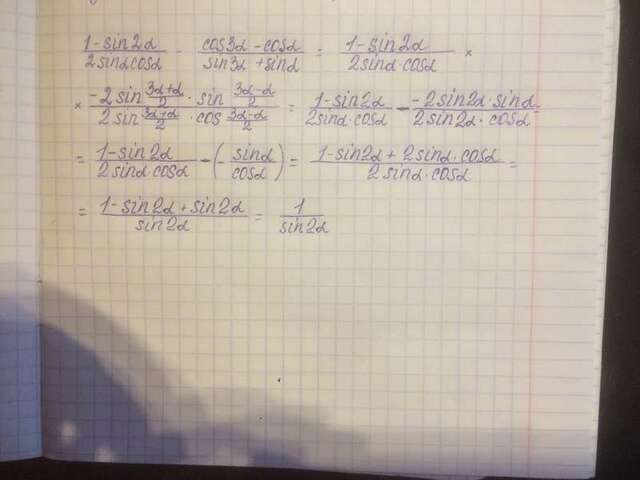 (1-sin2α)/(2sinα cosα) - (cos3α-cosα)/(sin3α+sinα) = (1-sin2α)/(2sinα·cosα) ×
× (-2sin (3α+α)/2 · sin (3α-α)/2)/(2sin (3α+α)/2 · cos (3α-α)/2) = (1-sin2α)/(2sinα·cosα) - (-2sin2α·sinα)/(2sin2α·cosα) =
= (1-sin2α)/(2sinα·cosα) - (- sinα/cosα) = (1-sin2α+2sinα·cosα)/(2sinα·cosα) =
= (1-sin2α+sin2α)/(sin2α) = 1/(sin2α)